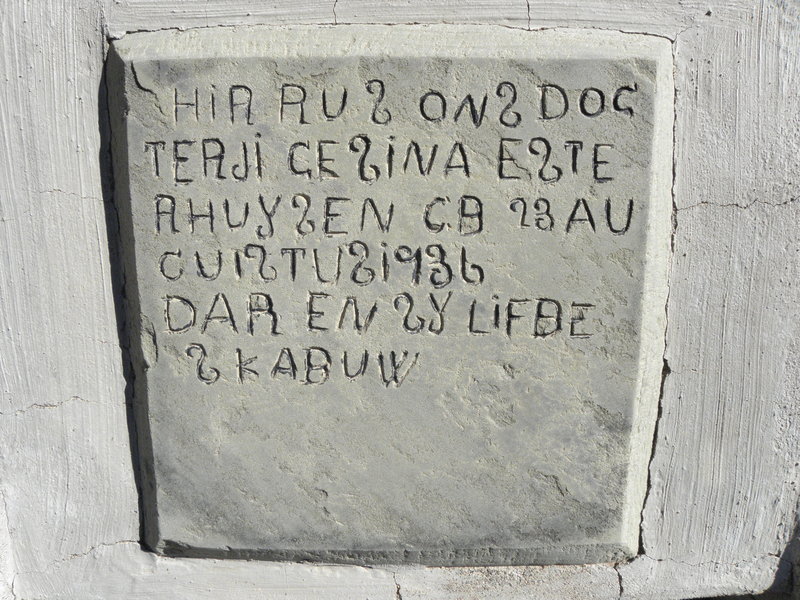 HIR RUS ONS DOG
TERJI GESINA ESTE
RHUYSEN GB 23 AU
GUISTUS 1936
DAR EN SY LIFDE
SKADUW